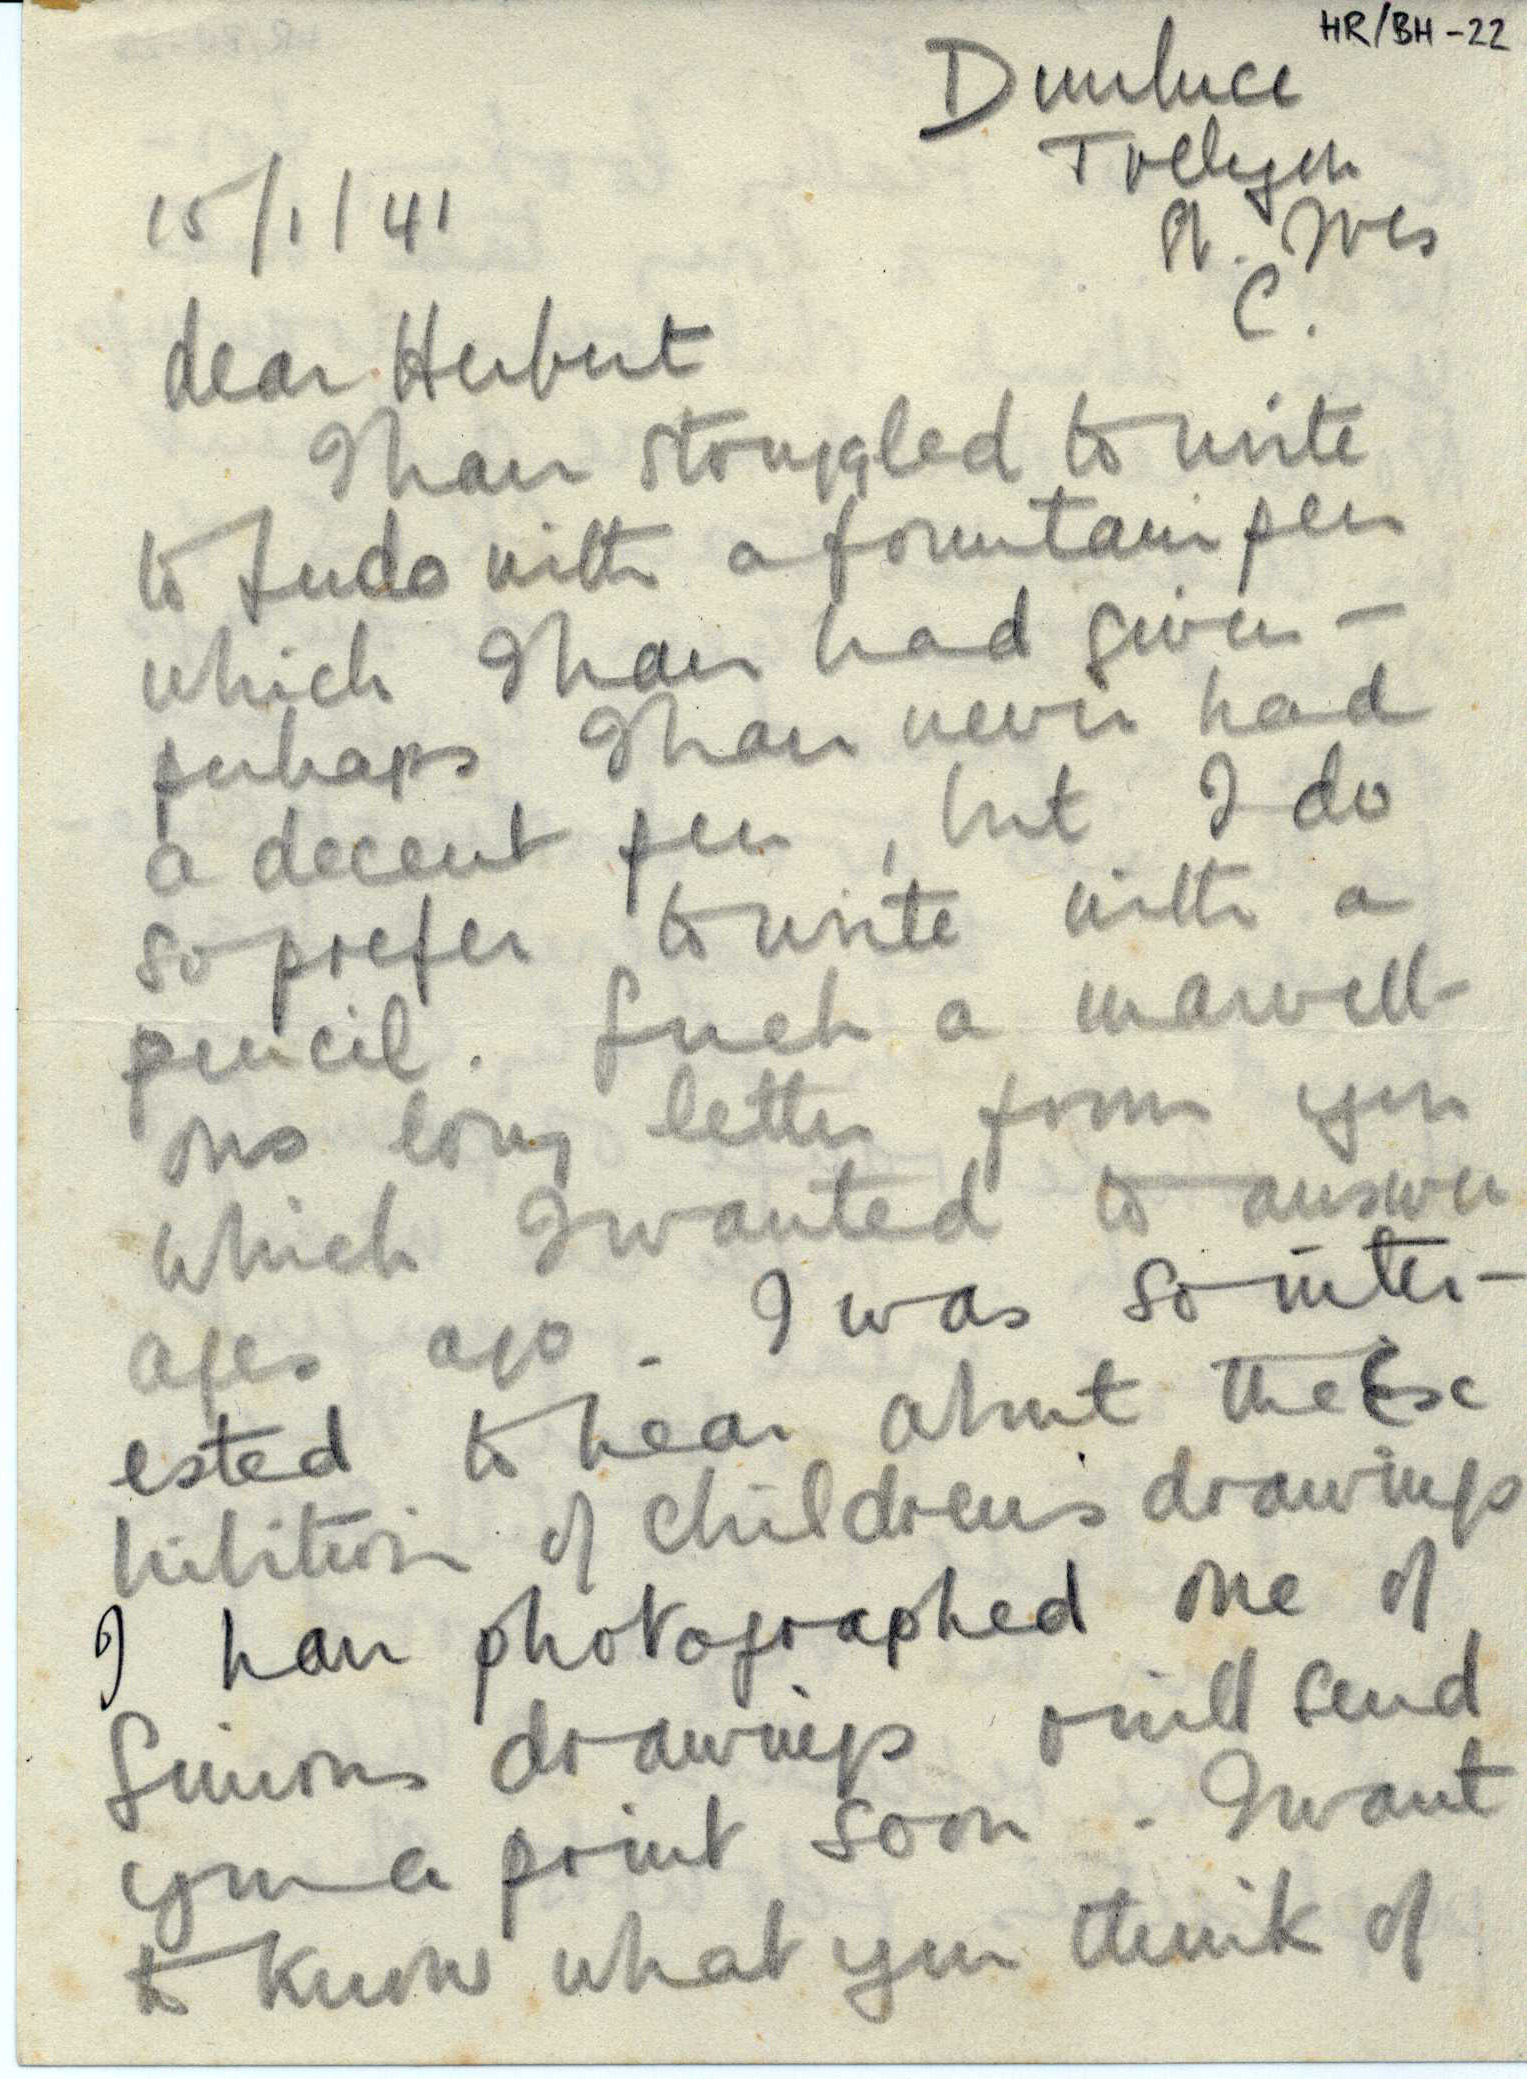 HR/BH-22
Dunluce
Trelyon
St. Ives
C.
15/1/41
dear Herbert
I have struggled to write
to Ludo with a fountain pen
which I have had given -
perhaps I have never had
a decent pen, but I do
so prefer to write with a
pencil. Such a marvell-
ous long letter from you
which I wanted to answer
ages ago. I was so inter-
ested to hear about the Ex
hibition of childrens drawings
I have photographed one of
Simons drawings & will send
you a print soon. I want
to know what you think of